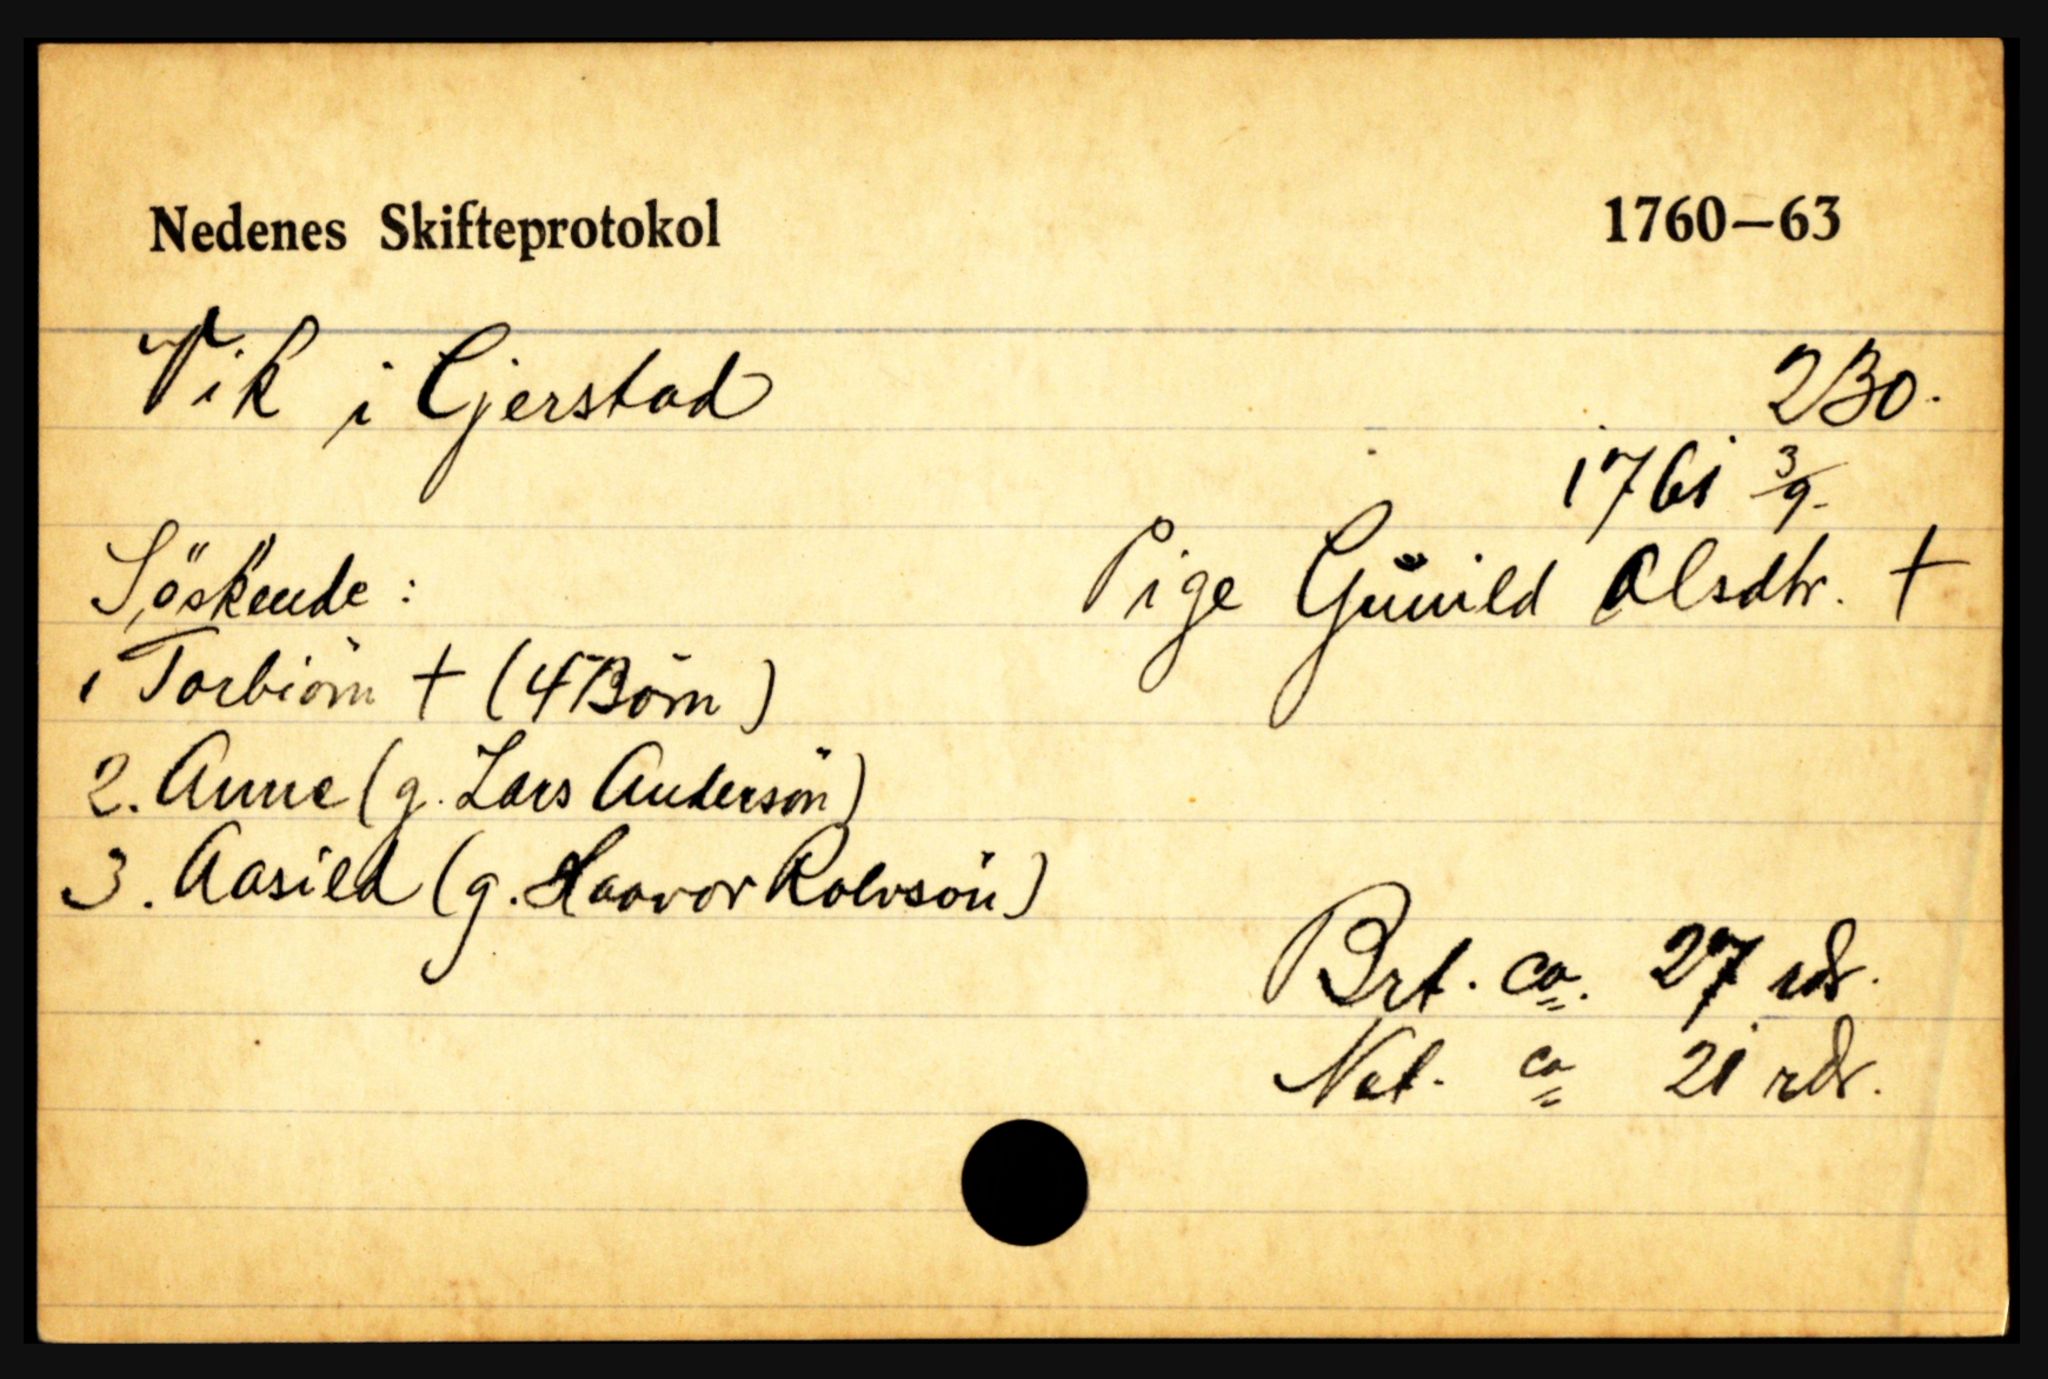 Nedenes Skifteprotokol 1760–63
Vik i Gjerstad 230.
1761 3/9.
Pige Gunild Olsdtr. +
Söskende:
1 Torbiörn + (4 Börn)
2. Anne (g. Lars Andersön)
3. Aasild (g. Haavor Rolvsön)
Brt. ca. 27 rdr.
Net. ca 21 rdr.